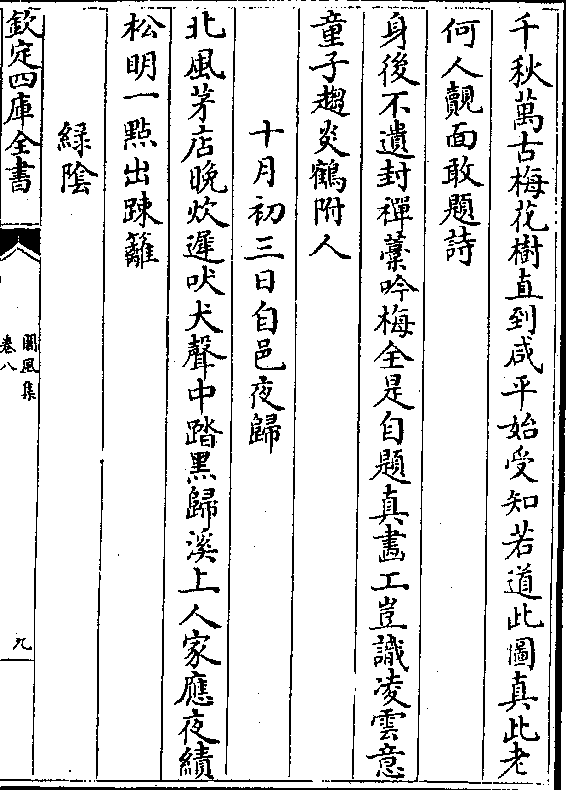 千秋萬古梅花樹直到咸平始受知若道此圖真此老
何人覿面敢題詩
身後不遺封禪藁吟梅全是自題真畵工豈識凌雲意
童子趨炎鶴附人
十月初三日自邑夜歸
北風茅店晚炊遲吠犬聲中踏黑歸溪上人家應夜績
松明一點出踈籬
綠陰
欽定四庫全書
閬風集
卷八
九